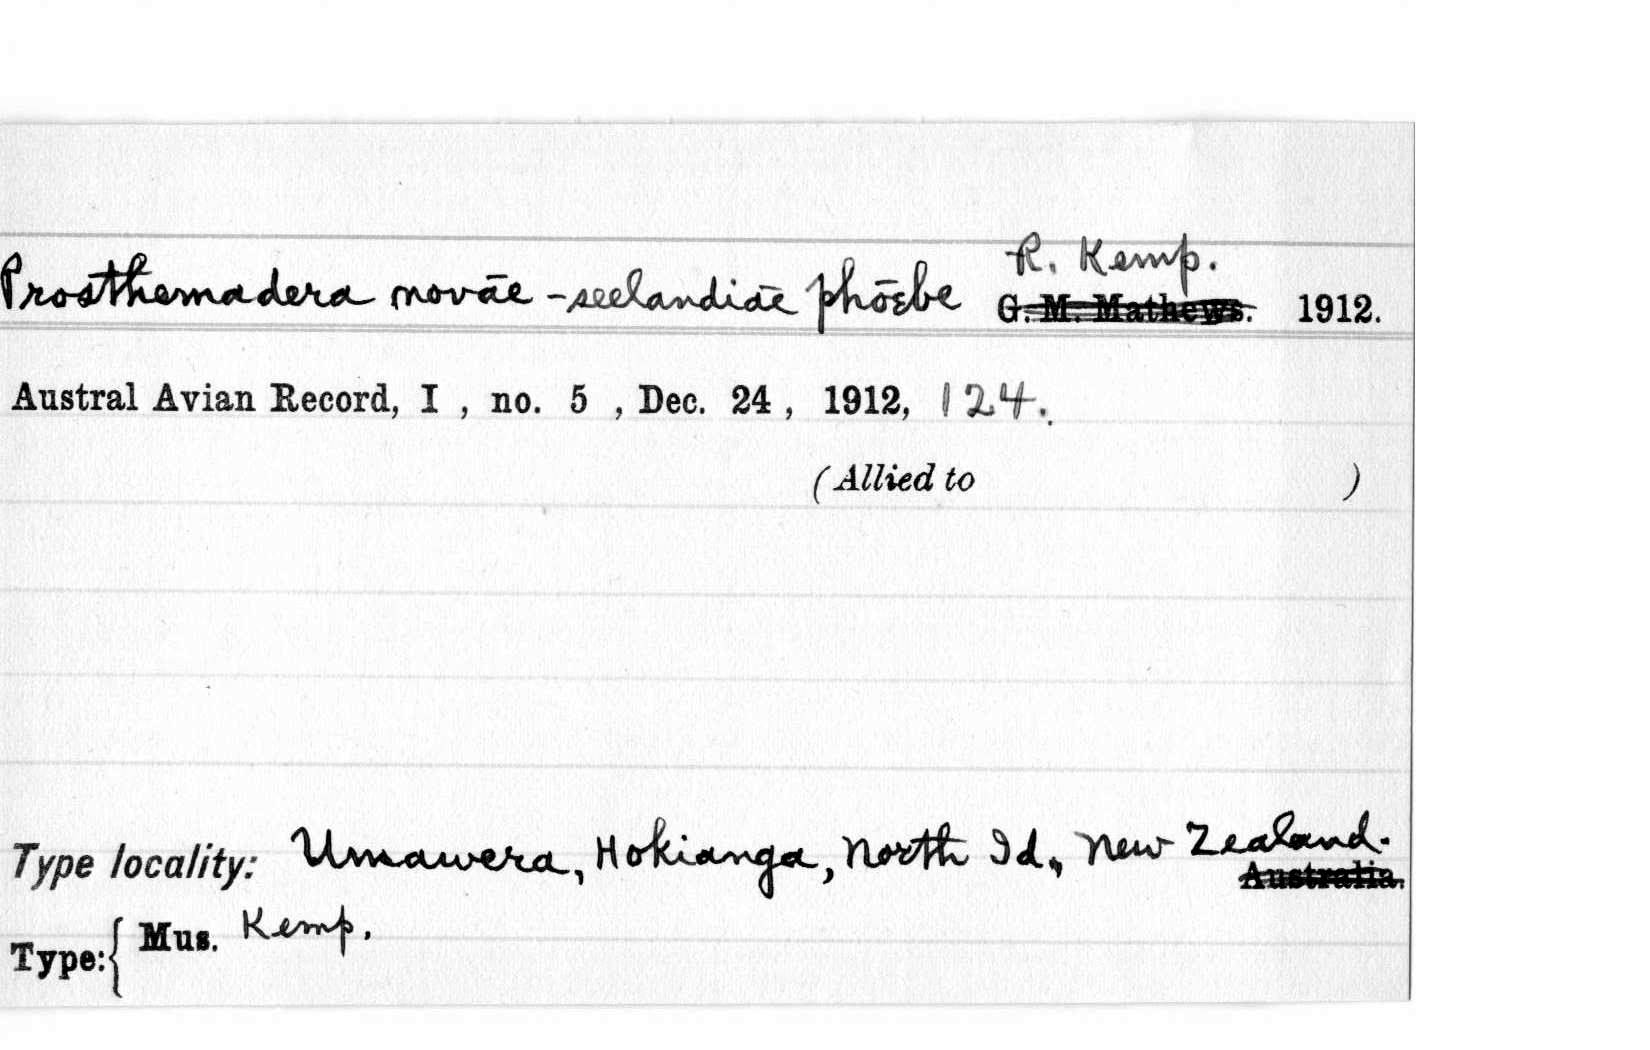 R. Kemp.
Prosthemadera novāe-seelandiāe phōebe G. M. Mathews. 1912.
Austral Avian Record, I , no. 5 , Dec. 24 , 1912, 124.
(Allied to )
Type locality: Umawera, Hokianga, North Id., New Zealand.
Australia.
Type:{ Mus. Kemp.